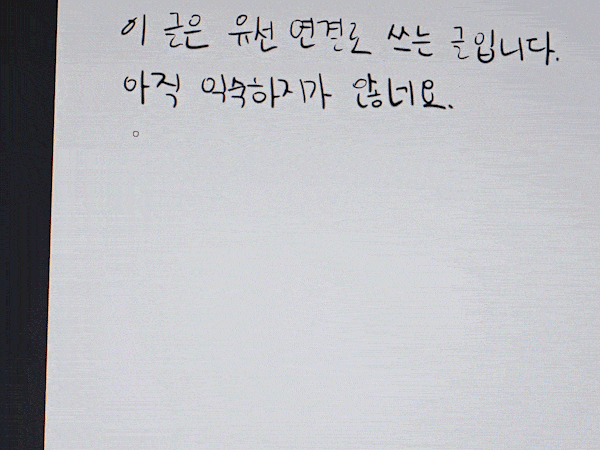 이 글은 유선 연결로 쓰는 글입니다.
아직 익숙하지가 않네요.